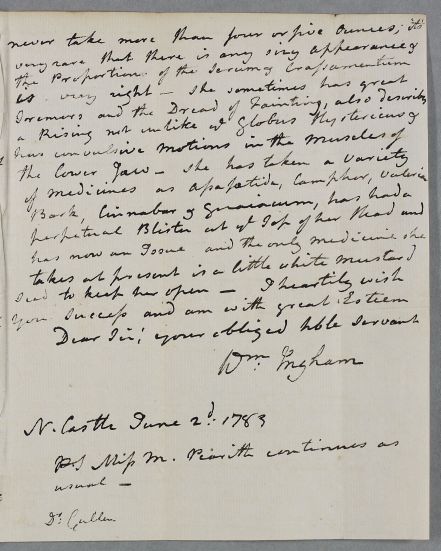 never take more than four or five Ounces; it's
very rare that there is any sizy appearance &
the Proportion of the Serum & Crassamentum
is very right - She sometimes has great
Tremors and the Dread of Fainting, also describes
a Rising not unlike ye Globus Hystericus &
has convulsive motions in the muscles of
the Lower Jaw - She has taken a variety
of medicines as Asafatida, Camphor, valerian
Bark, Cinnabar & Guaiacum, has had a
perpetual Blister at ye Top of her Head and
has now an Issue and the only medicine she
takes at present is a little white mustard
seed to keep her open - I heartily wish
you Success and am with great Esteem
Dear Sir, your obliged hble Servant
Wm. Ingham
N. Castle June 2d. 1783
P.S Miss M. continues as
usual -
Dr. Cullen